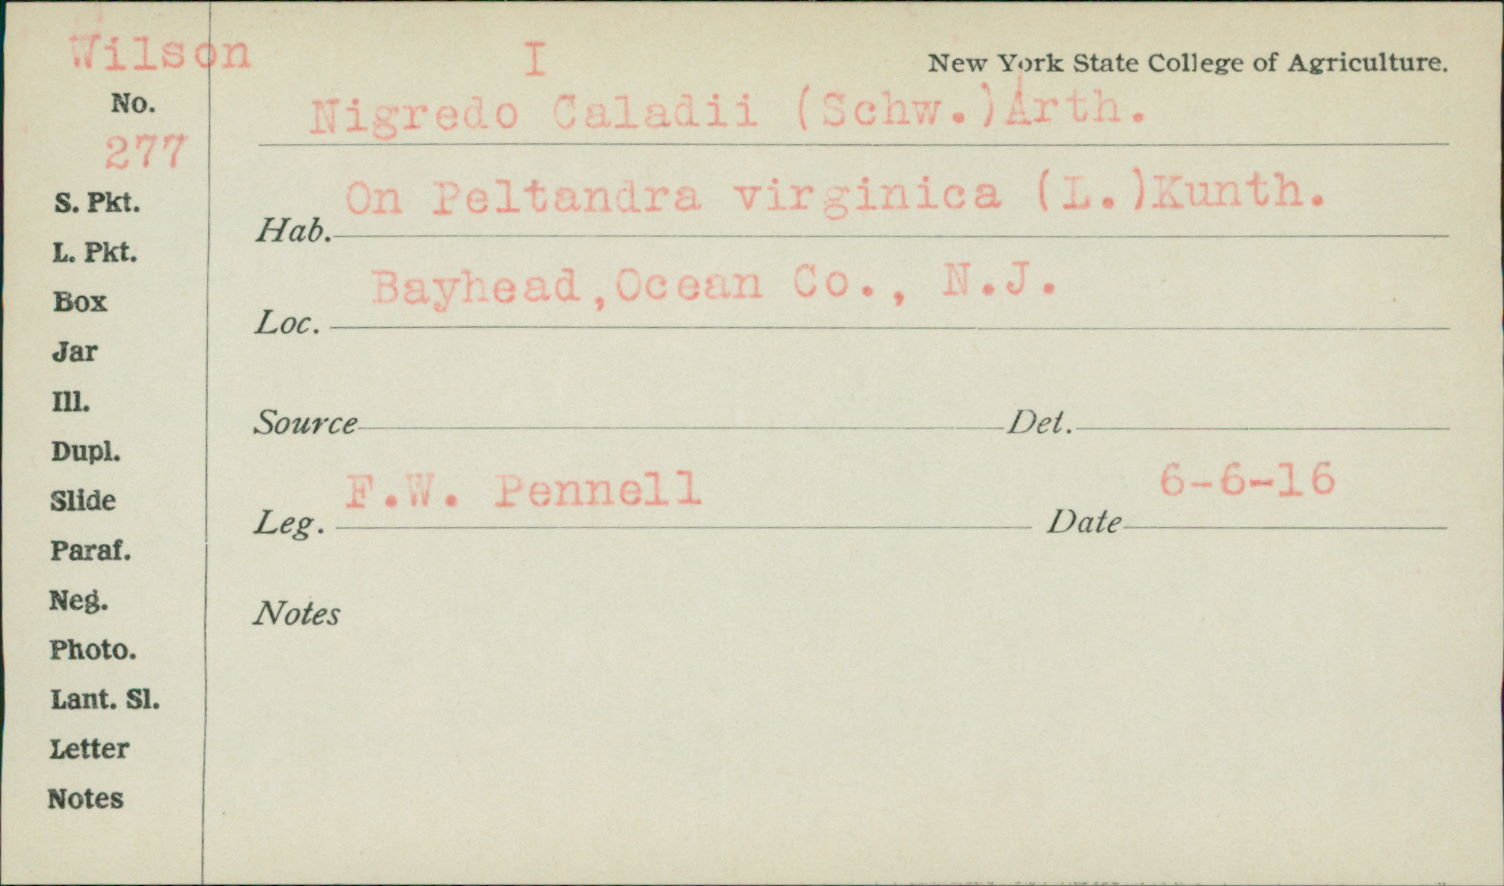 Wilson I New York State College of Agriculture.
No.
277
Nigredo Caladii (Schw.)Arth.
S. Pkt.
L. Pkt.
Box
Jar
Ill.
Dupl.
Slide
Paraf.
Neg.
Photo.
Lant. Sl.
Letter
Notes
Hab. On Peltandra virginica (L.)Kunth.
Loc. Bayhead,Ocean Co., N.J.
Source Det.
Leg. F.W. Pennell Date 6-6-16
Notes